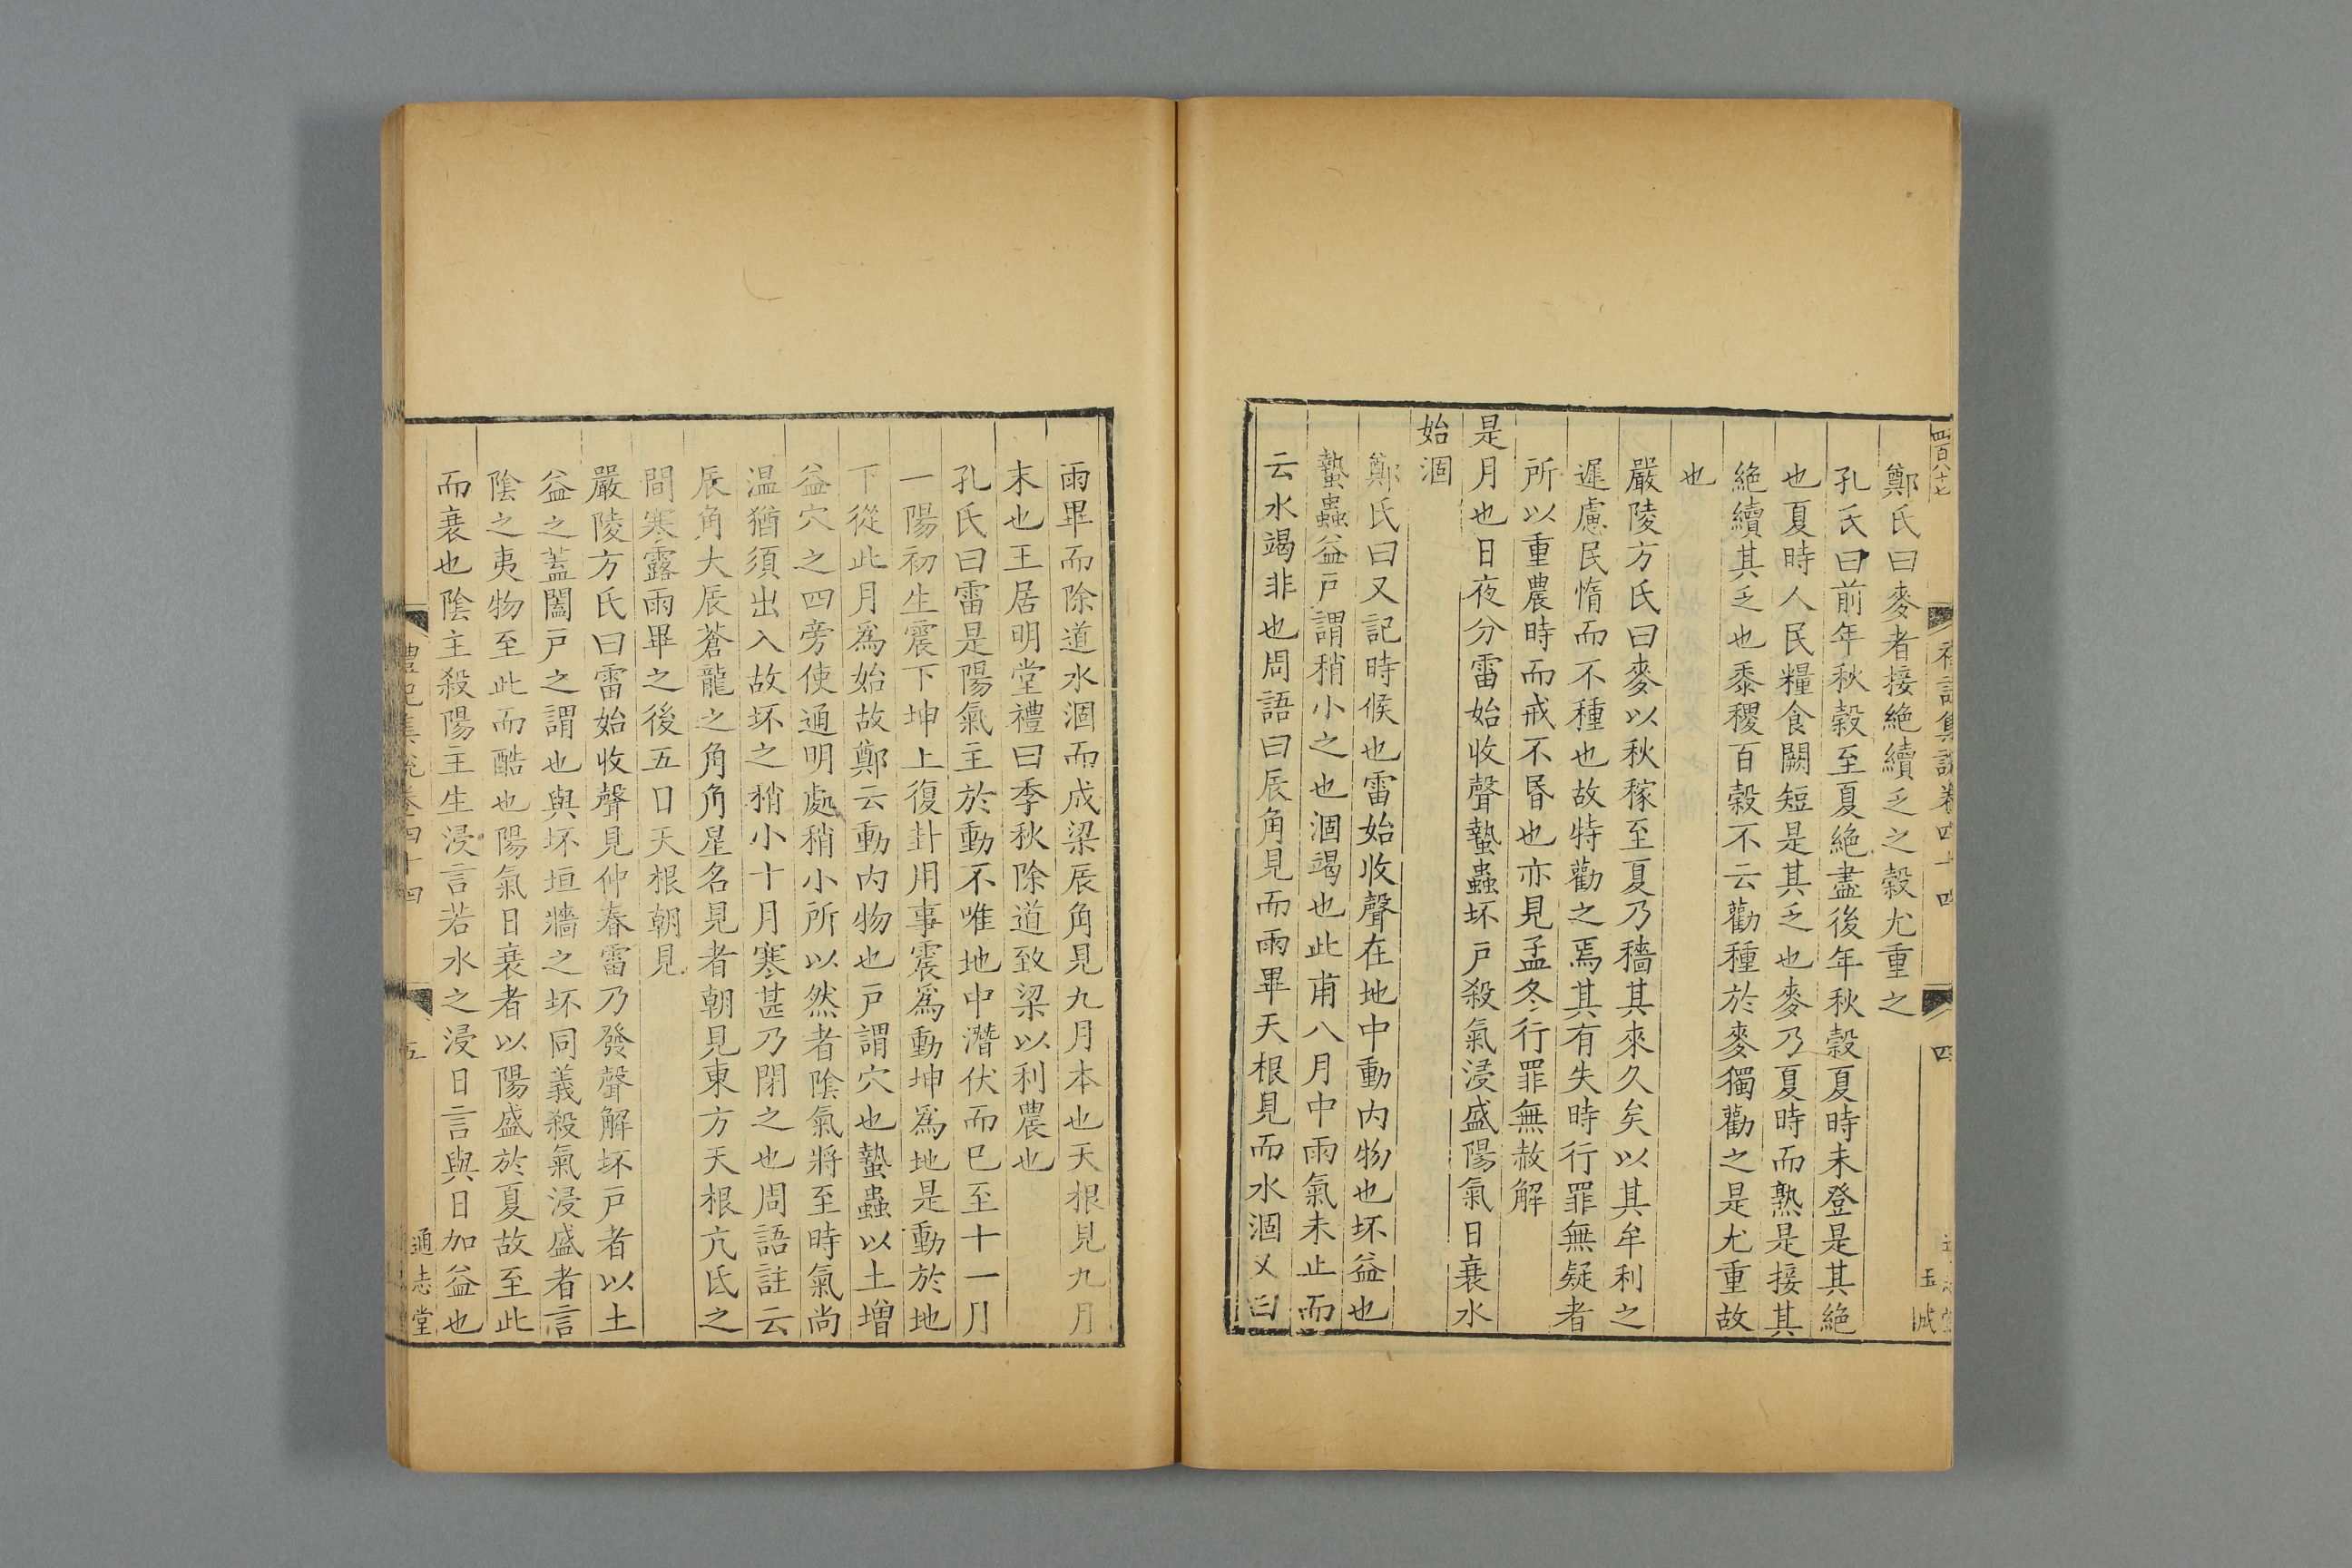 四百八十七
禮記集說卷四十四
四
玉成
鄭氏曰麥者接絶續乏之穀尤重之
孔氏曰前年秋穀至夏絶盡後年秋穀夏時未登是其絶
也夏時人民糧食闕短是其乏也麥乃夏時而熟是接其
絶續其乏也黍稷百穀不云勸種於麥獨勸之是尤重故
也
嚴陵方氏曰麥以秋稼至夏乃穡其來久矣以其牟利之
遲慮民惰而不種也故特勸之焉其有失時行罪無疑者
所以重農時而戒不昬也亦見孟冬行罪無赦解
是月也日夜分雷始收聲蟄蟲坏戸殺氣浸盛陽氣日衰水
始涸
鄭氏曰又記時候也雷始收聲在地中動内物也坏益也
蟄蟲益戸謂稍小之也涸竭也此甫八月中雨氣未止而
云水竭非也周語曰辰角見而雨畢天根見而水涸又曰
雨畢而除道水涸而成梁辰角見九月本也天根見九月
末也王居明堂禮曰季秋除道致梁以利農也
孔氏曰雷是陽氣主於動不唯地中潛伏而已至十一月
一陽初生震下坤上復卦用事震爲動坤爲地是動於地
下從此月爲始故鄭云動内物也戸謂穴也蟄蟲以土增
益穴之四旁使通明處稍小所以然者陰氣將至時氣尚
温猶須出入故坏之稍小十月寒甚乃閉之也周語註云
辰角大辰蒼龍之角角星名見者朝見東方天根亢氐之
間寒露雨畢之後五日天根朝見
嚴陵方氏曰雷始收聲見仲春雷乃發聲解坏戸者以土
益之蓋闔戸之謂也與坏垣牆之坏同義殺氣浸盛者言
陰之夷物至此而酷也陽氣日衰者以陽盛於夏故至此
而衰也陰主殺陽主生浸言若水之浸日言與日加益也
禮記集說卷四十四
五
通志堂